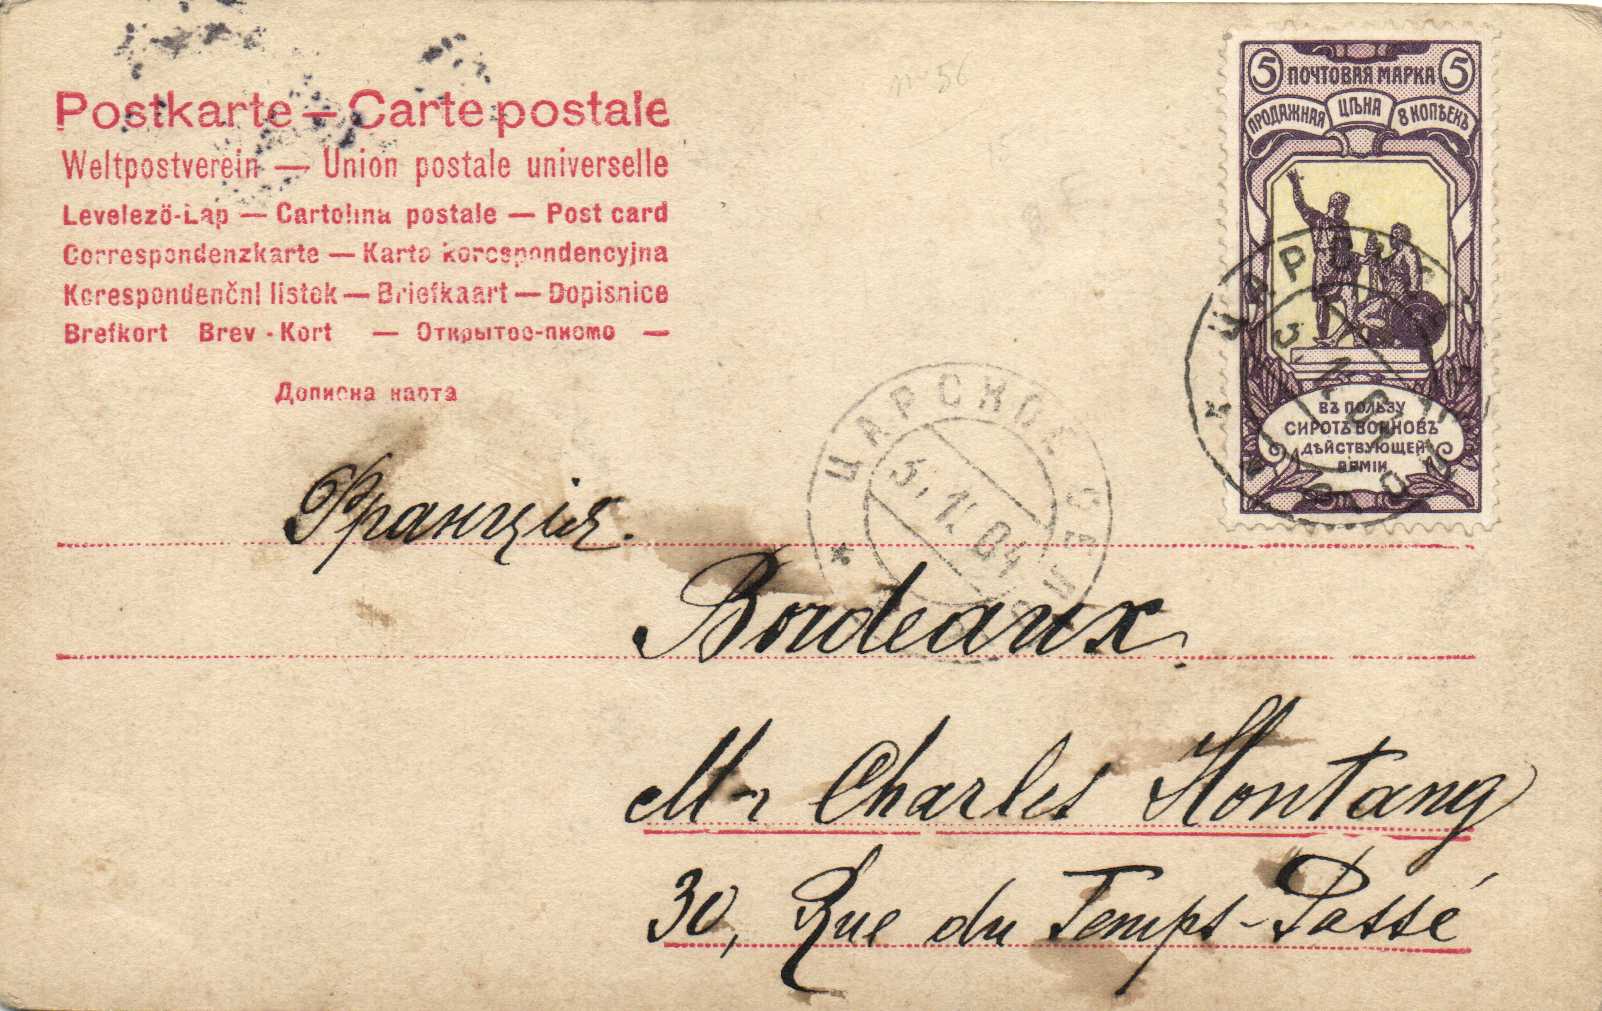 Postkarte — Carte postale
Weltpostverein — Union postale universelle
Levelező-Lap — Cartolina postale — Post card
Correspondenzkarte — Karta korespondencyjna
Korespondenční lístek — Briefkaart — Dopisnice
Brefkort Brev-Kort — Открытое-писмо —
Дописна карта
5 ПОЧТОВАЯ МАРКА 5
ПРОДАЖНАЯ ЦѢНА 8 КОПѢЕКЪ
ВЪ ПОЛЬЗУ
СИРОТЪ ВОИНОВЪ
ДѢЙСТВУЮЩЕЙ
АРМІИ
ЦАРСКОЕ СЕЛО
Франція.
Bordeaux.
Mr Charles Hontang
30, Rue du Temps-Passé